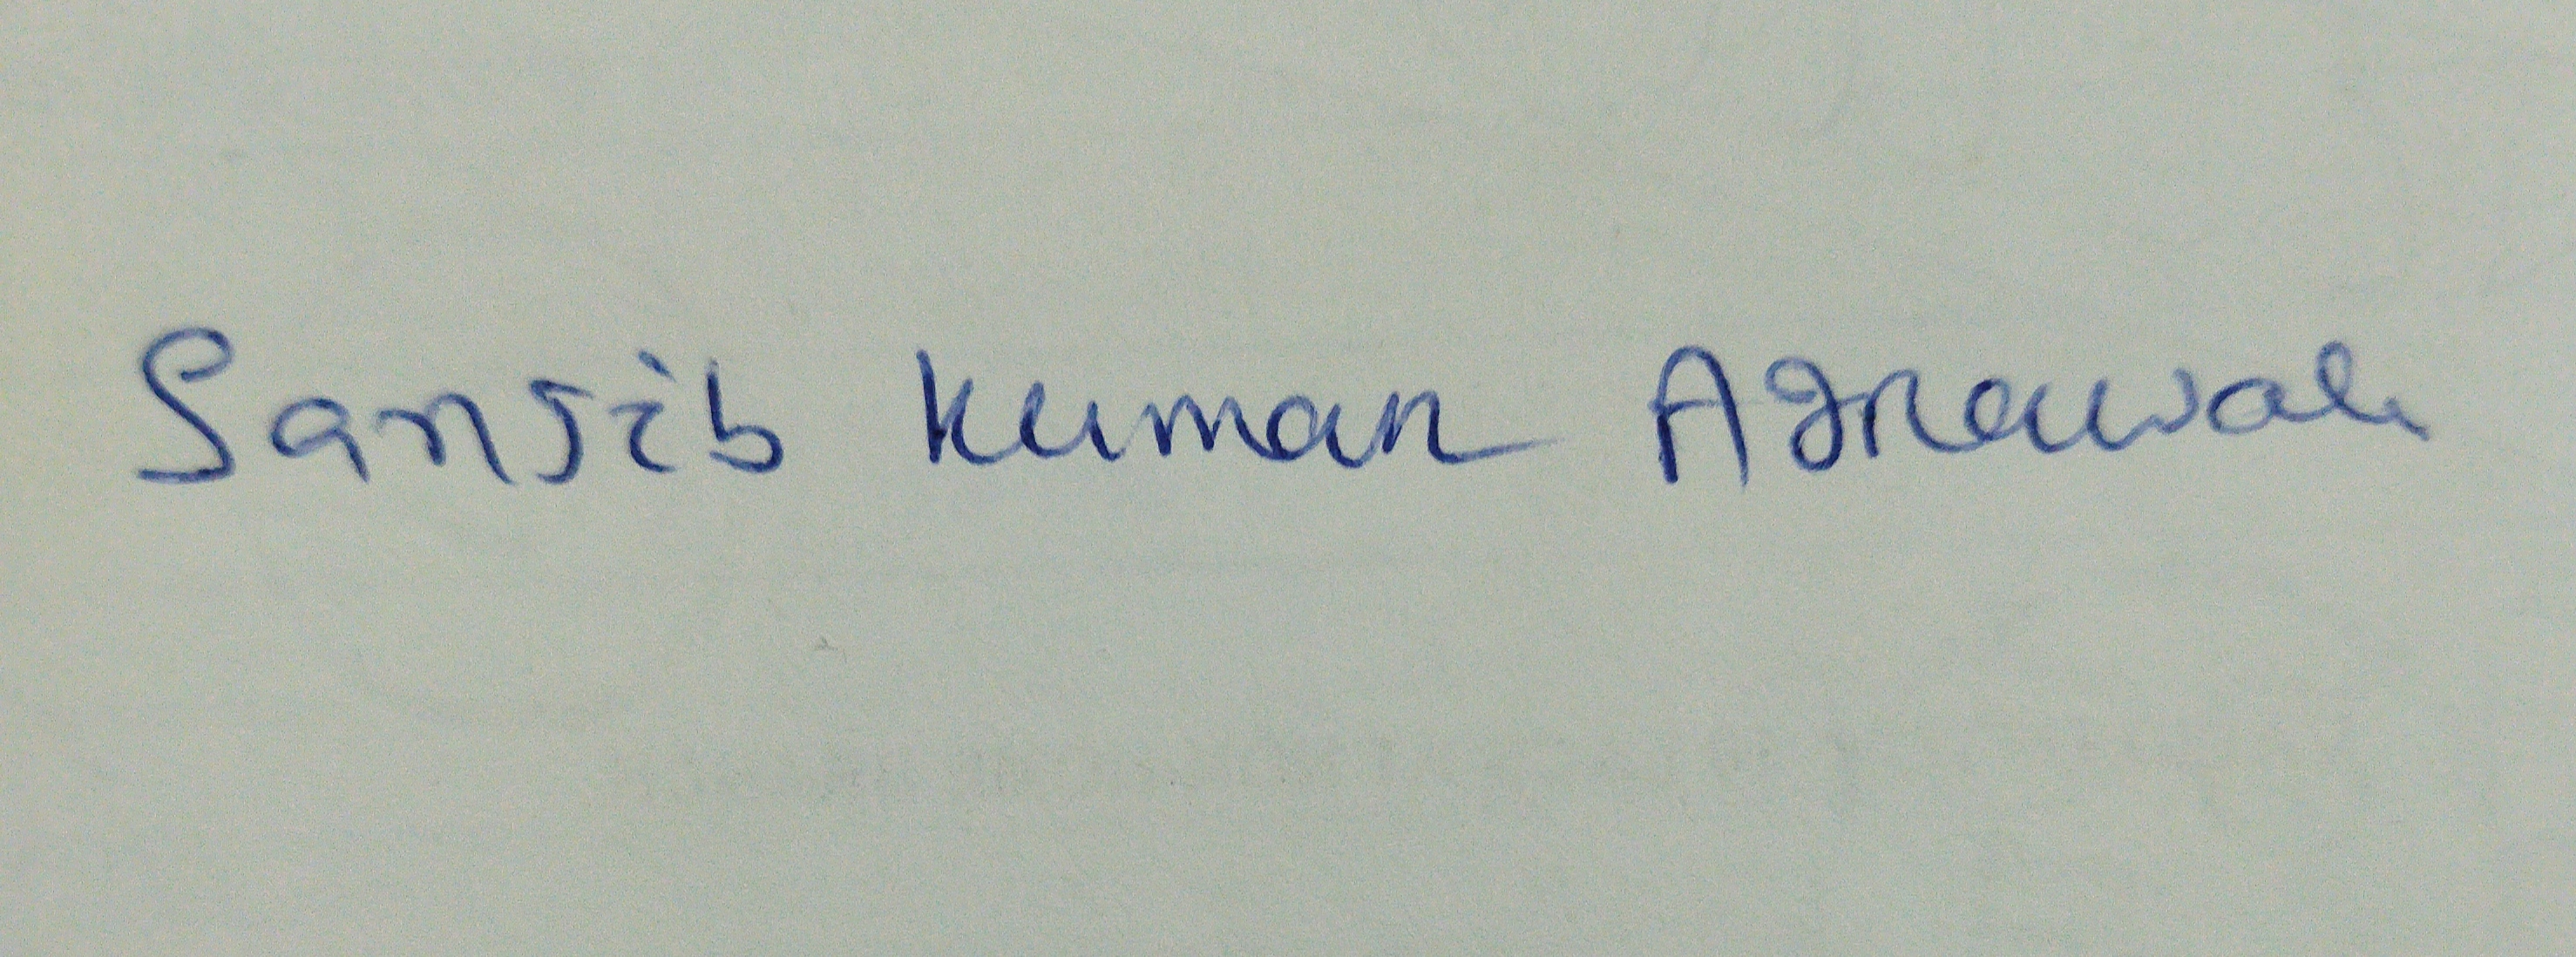 Sanjib Kumar Agrawal